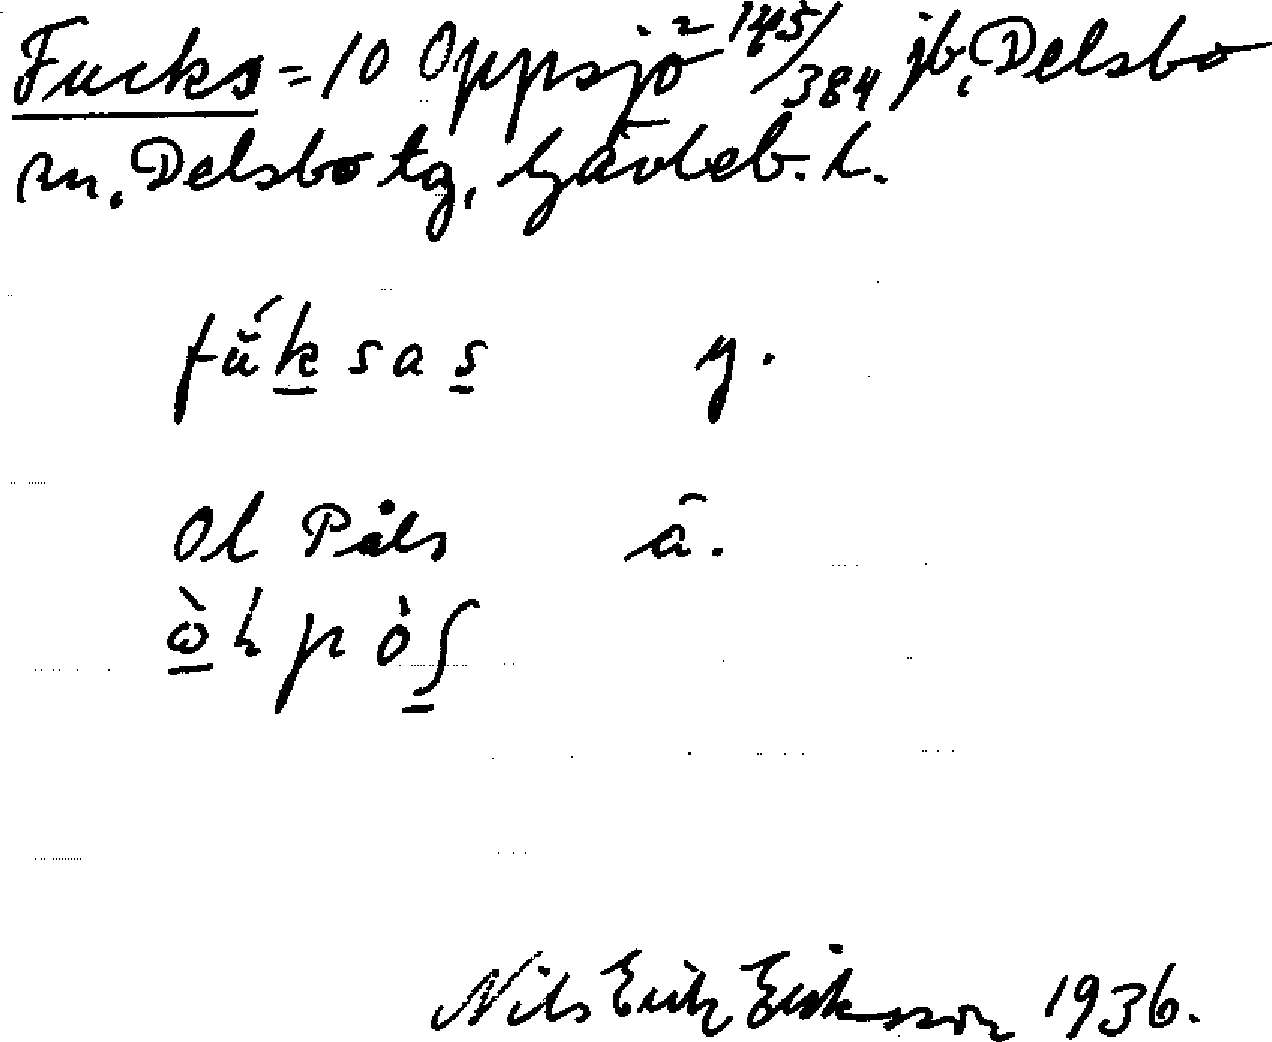 Fucks = 10 Oppsjö² 145/384 jb, Delsbo
sn. Delsbo tg, Gävleb. l.
fŭ́k sas y.
Ol Påls â.
ò l p ò ʃ
Nils Erik Eriksson 1936.